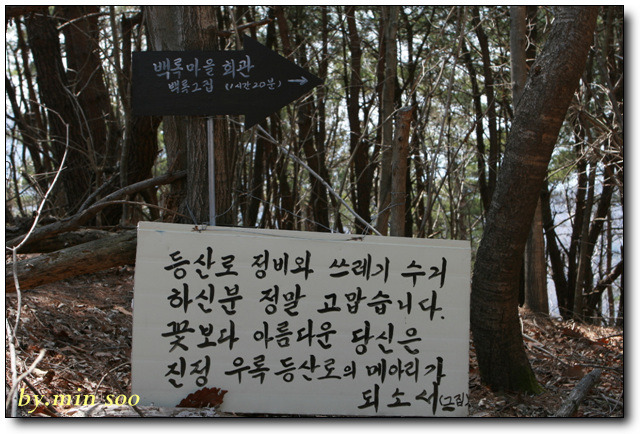 백록마을 회관
백록그집 (1시간20분)
등산로 정비와 쓰레기 수거
하신분 정말 고맙습니다.
꽃보다 아름다운 당신은
진정 우록 등산로의 메아리가
되소서 (그집)
by.min soo